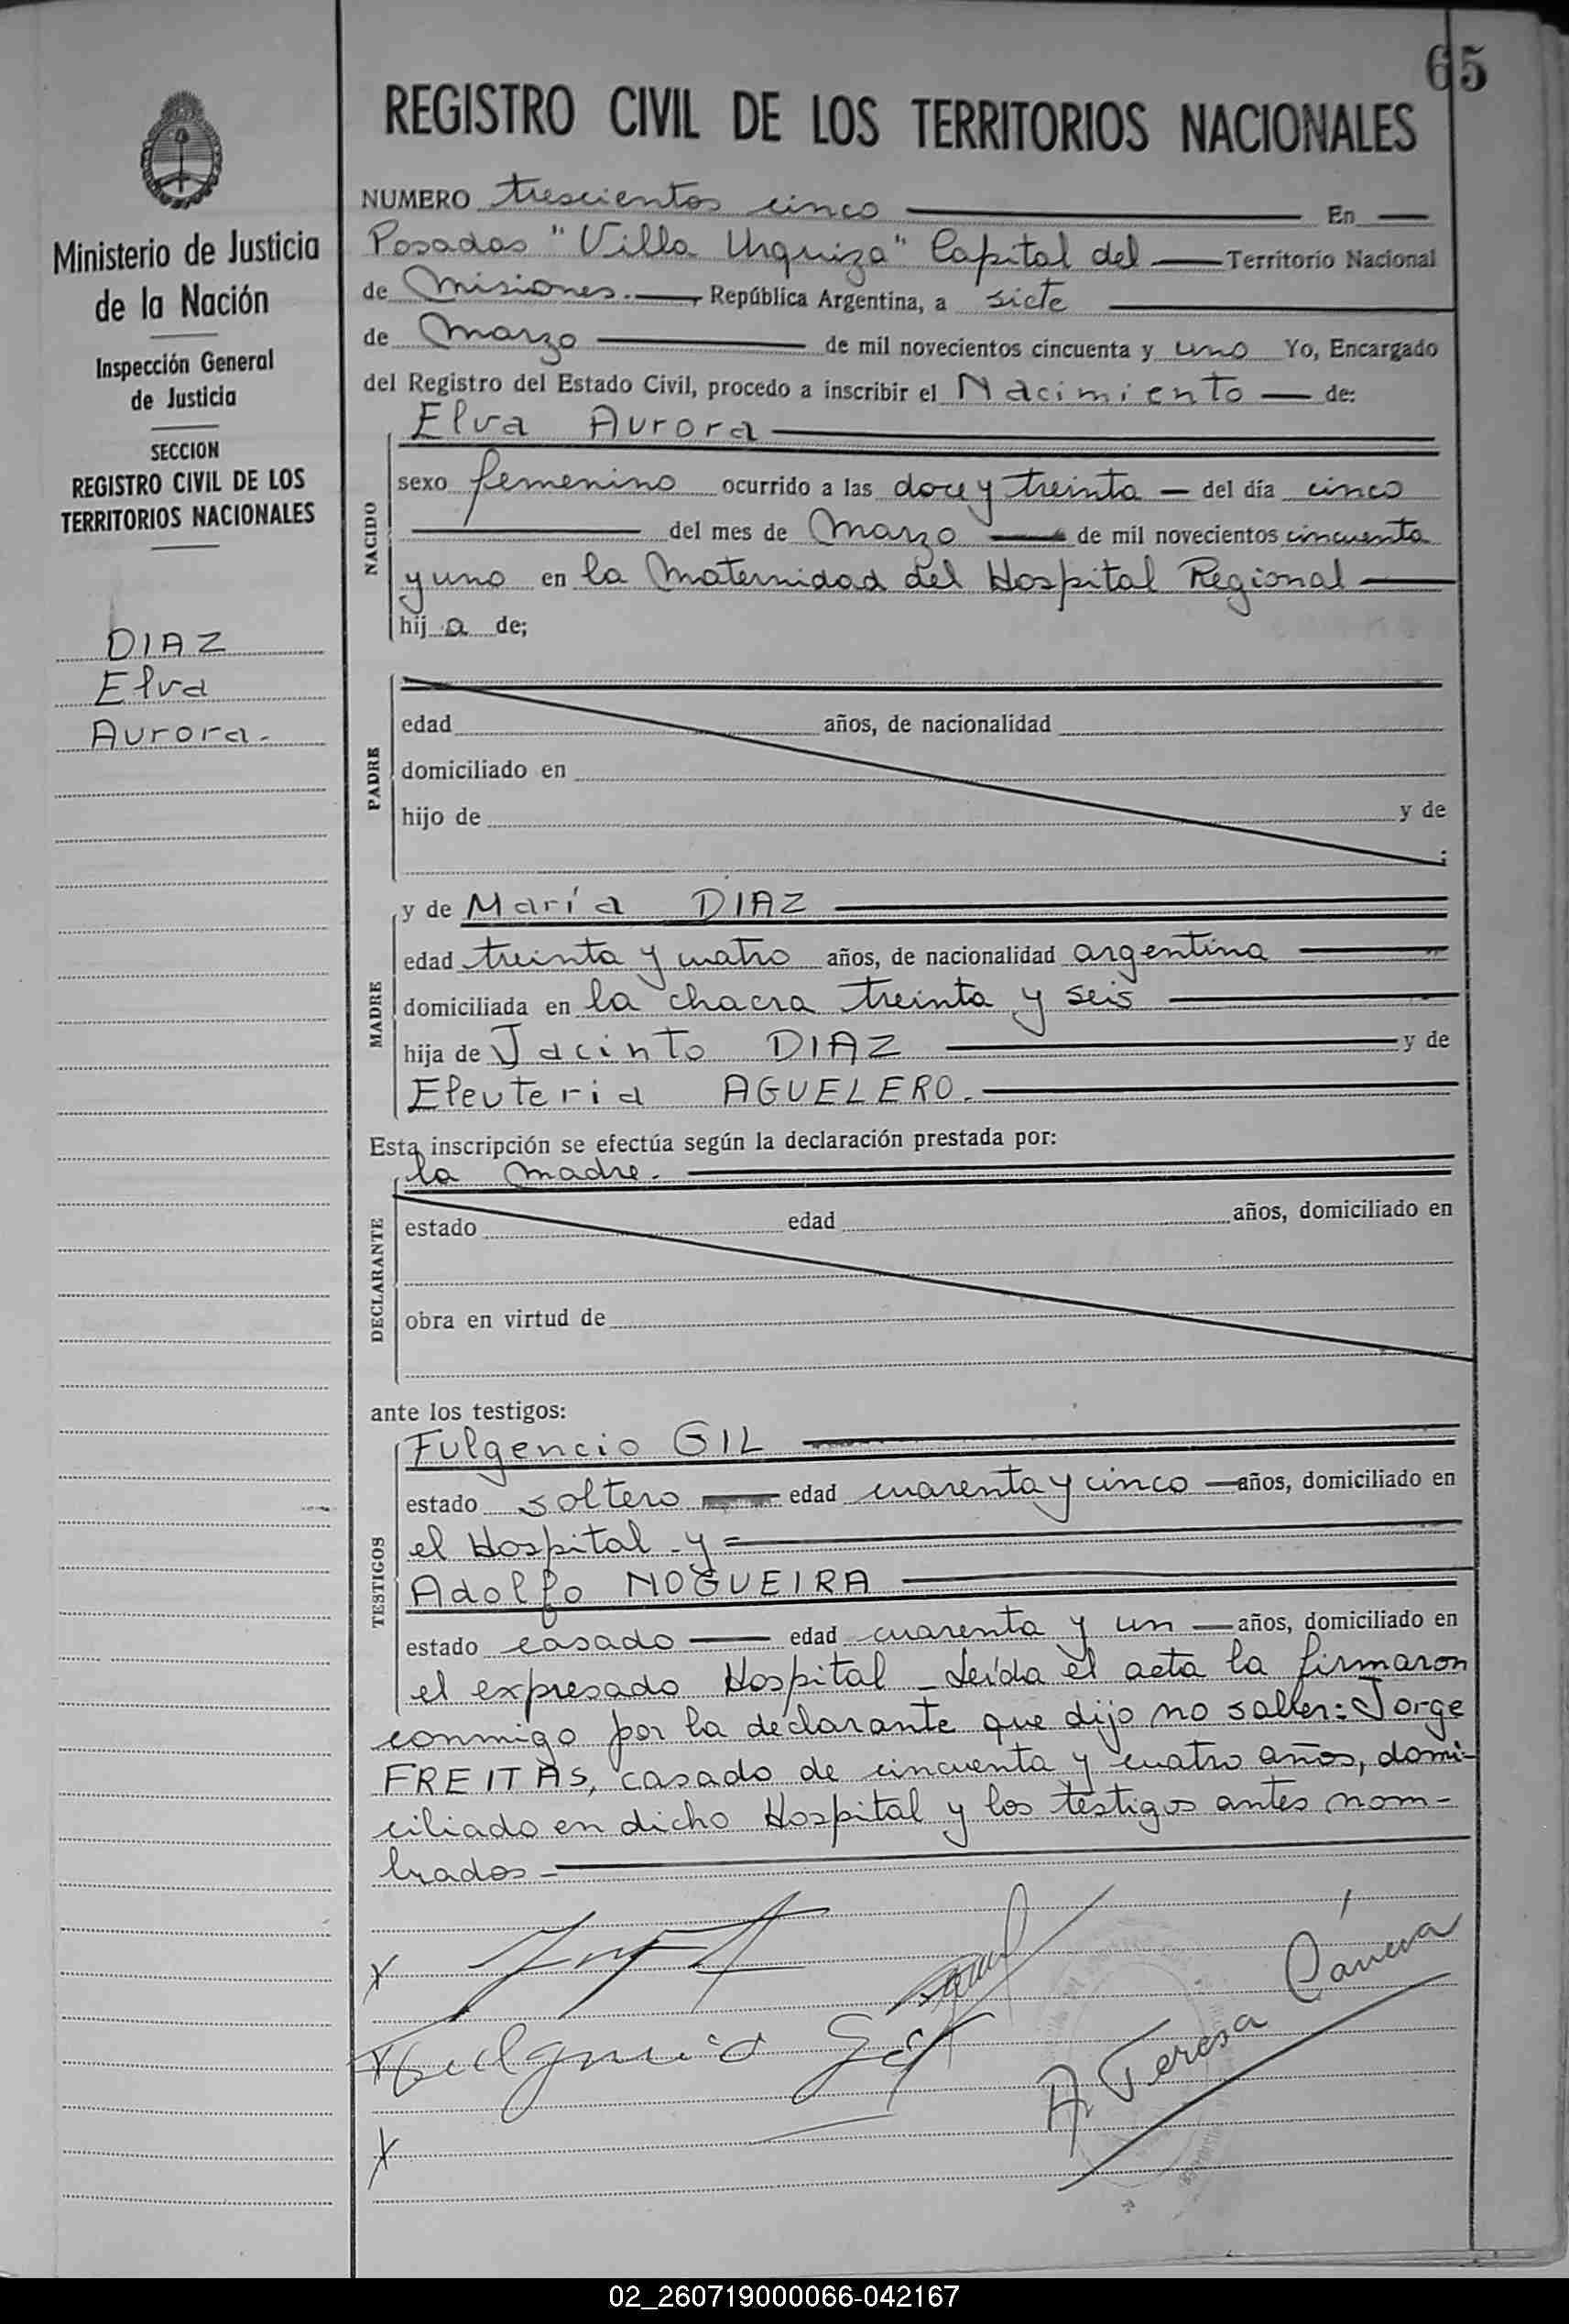 65
REGISTRO CIVIL DE LOS TERRITORIOS NACIONALES
Ministerio de Justicia
de la Nación
Inspección General
de Justicia
SECCION
REGISTRO CIVIL DE LOS
TERRITORIOS NACIONALES
DIAZ
Elva
Aurora.-
NUMERO trescientos cinco En
Posadas "Villa Urquiza" Capital del Territorio Nacional
de Misiones.-, República Argentina, a siete
de Marzo de mil novecientos cincuenta y uno Yo, Encargado
del Registro del Estado Civil, procedo a inscribir el Nacimiento de:
NACIDO
Elva Aurora
sexo femenino ocurrido a las doce y treinta - del día cinco
del mes de Marzo de mil novecientos cincuenta
y uno en la Maternidad del Hospital Regional
hij a de;
PADRE
edad años, de nacionalidad
domiciliado en
hijo de y de
;
MADRE
y de María DIAZ
edad treinta y cuatro años, de nacionalidad argentina
domiciliada en la chacra treinta y seis
hija de Jacinto DIAZ y de
Eleuteria AGUELERO.-
Esta inscripción se efectúa según la declaración prestada por:
la madre.-
DECLARANTE
estado edad años, domiciliado en
obra en virtud de
ante los testigos:
TESTIGOS
Fulgencio GIL
estado soltero edad cuarenta y cinco - años, domiciliado en
el Hospital - y =
Adolfo NOGUEIRA
estado casado edad cuarenta y un - años, domiciliado en
el expresado Hospital - Leída el acta la firmaron
conmigo por la declarante que dijo no saber: Jorge
FREITAS, casado de cincuenta y cuatro años, domi-
ciliado en dicho Hospital y los testigos antes nom-
brados -
x
x Fulgencio Gil
A. Teresa Cáneva
x
02_260719000066-042167